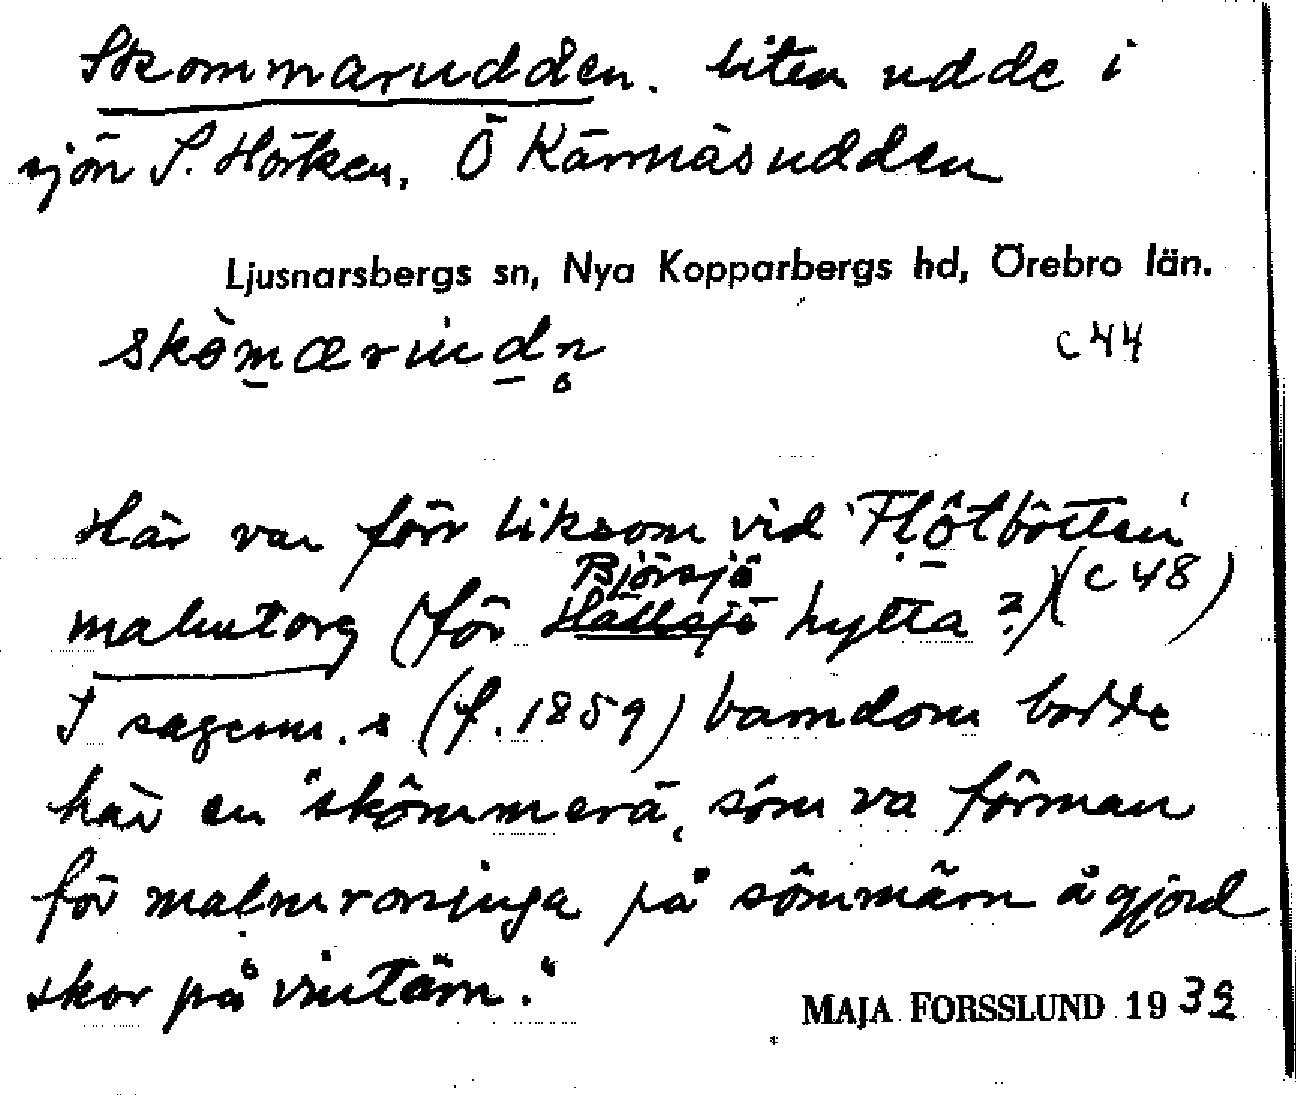 Skommarudden. liten udde i
sjön S. Hörken, Ö Kärrnäsudden
Ljusnarsbergs sn, Nya Kopparbergs hd, Örebro län.
skòmærudn
c 44
Här var förr liksom vid 'Flôtbôtten'
Björsjö
malmtorg (för Hällsjö hytta?) (c 48)
I sagesm.s (f. 1859) barndom bodde
här en "skômmerä, sóm va fôrman
för malmroninga på sômmärn å gjord
skor på vintärn."
MAJA FORSSLUND 19